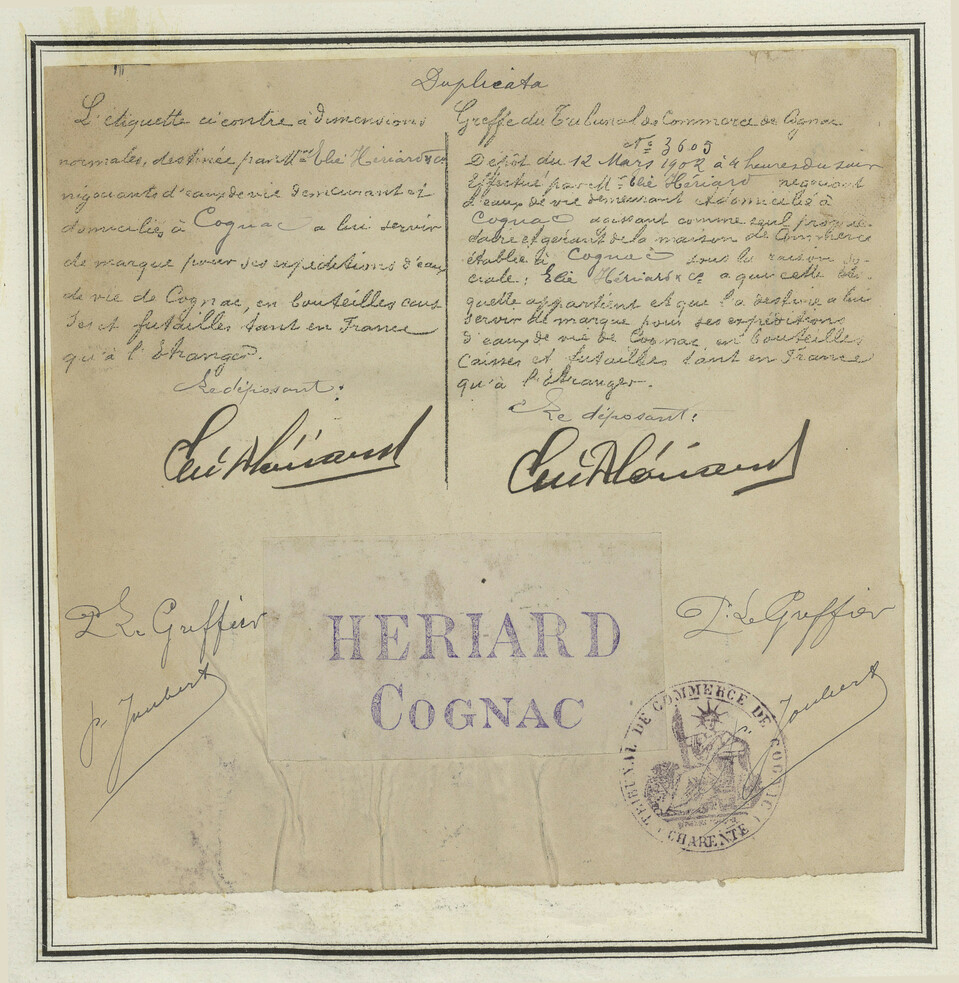 Duplicata
L'étiquette ci contre à dimensions
normales, destinée par Mrs Elie Hériard & Ce
négociants d'eaux de vie demeurant et
domiciliés à Cognac a lui servir
de marque pour ses expéditions d'eaux
de vie de Cognac, en bouteilles cais
ses et futailles, tant en France
qu'à l'Etranger.
Le déposant:
Elie Hériard
Greffe du Tribunal de Commerce de Cognac
No 3605
Dépôt du 12 Mars 1902 à 4 heures du soir
Effectué par Mr Elie Hériard négociant
d'eaux de vie demeurant et domicilié à
Cognac agissant comme seul proprié-
taire et gérant de la maison de Commerce
établie à Cognac sous la raison so-
ciale: Elie Hériard & Ce a qui cette éti-
quette appartient et que l'a destine a lui
servir de marque pour ses expéditions
d'eaux de vie de Cognac, en bouteilles
Caisses et futailles tant en France
qu'à l'étranger.
Le déposant:
Elie Hériard
P. Le Greffier
Joubert
HERIARD
COGNAC
P. Le Greffier
Joubert
TRIBUNAL DE COMMERCE DE COGNAC
(CHARENTE)